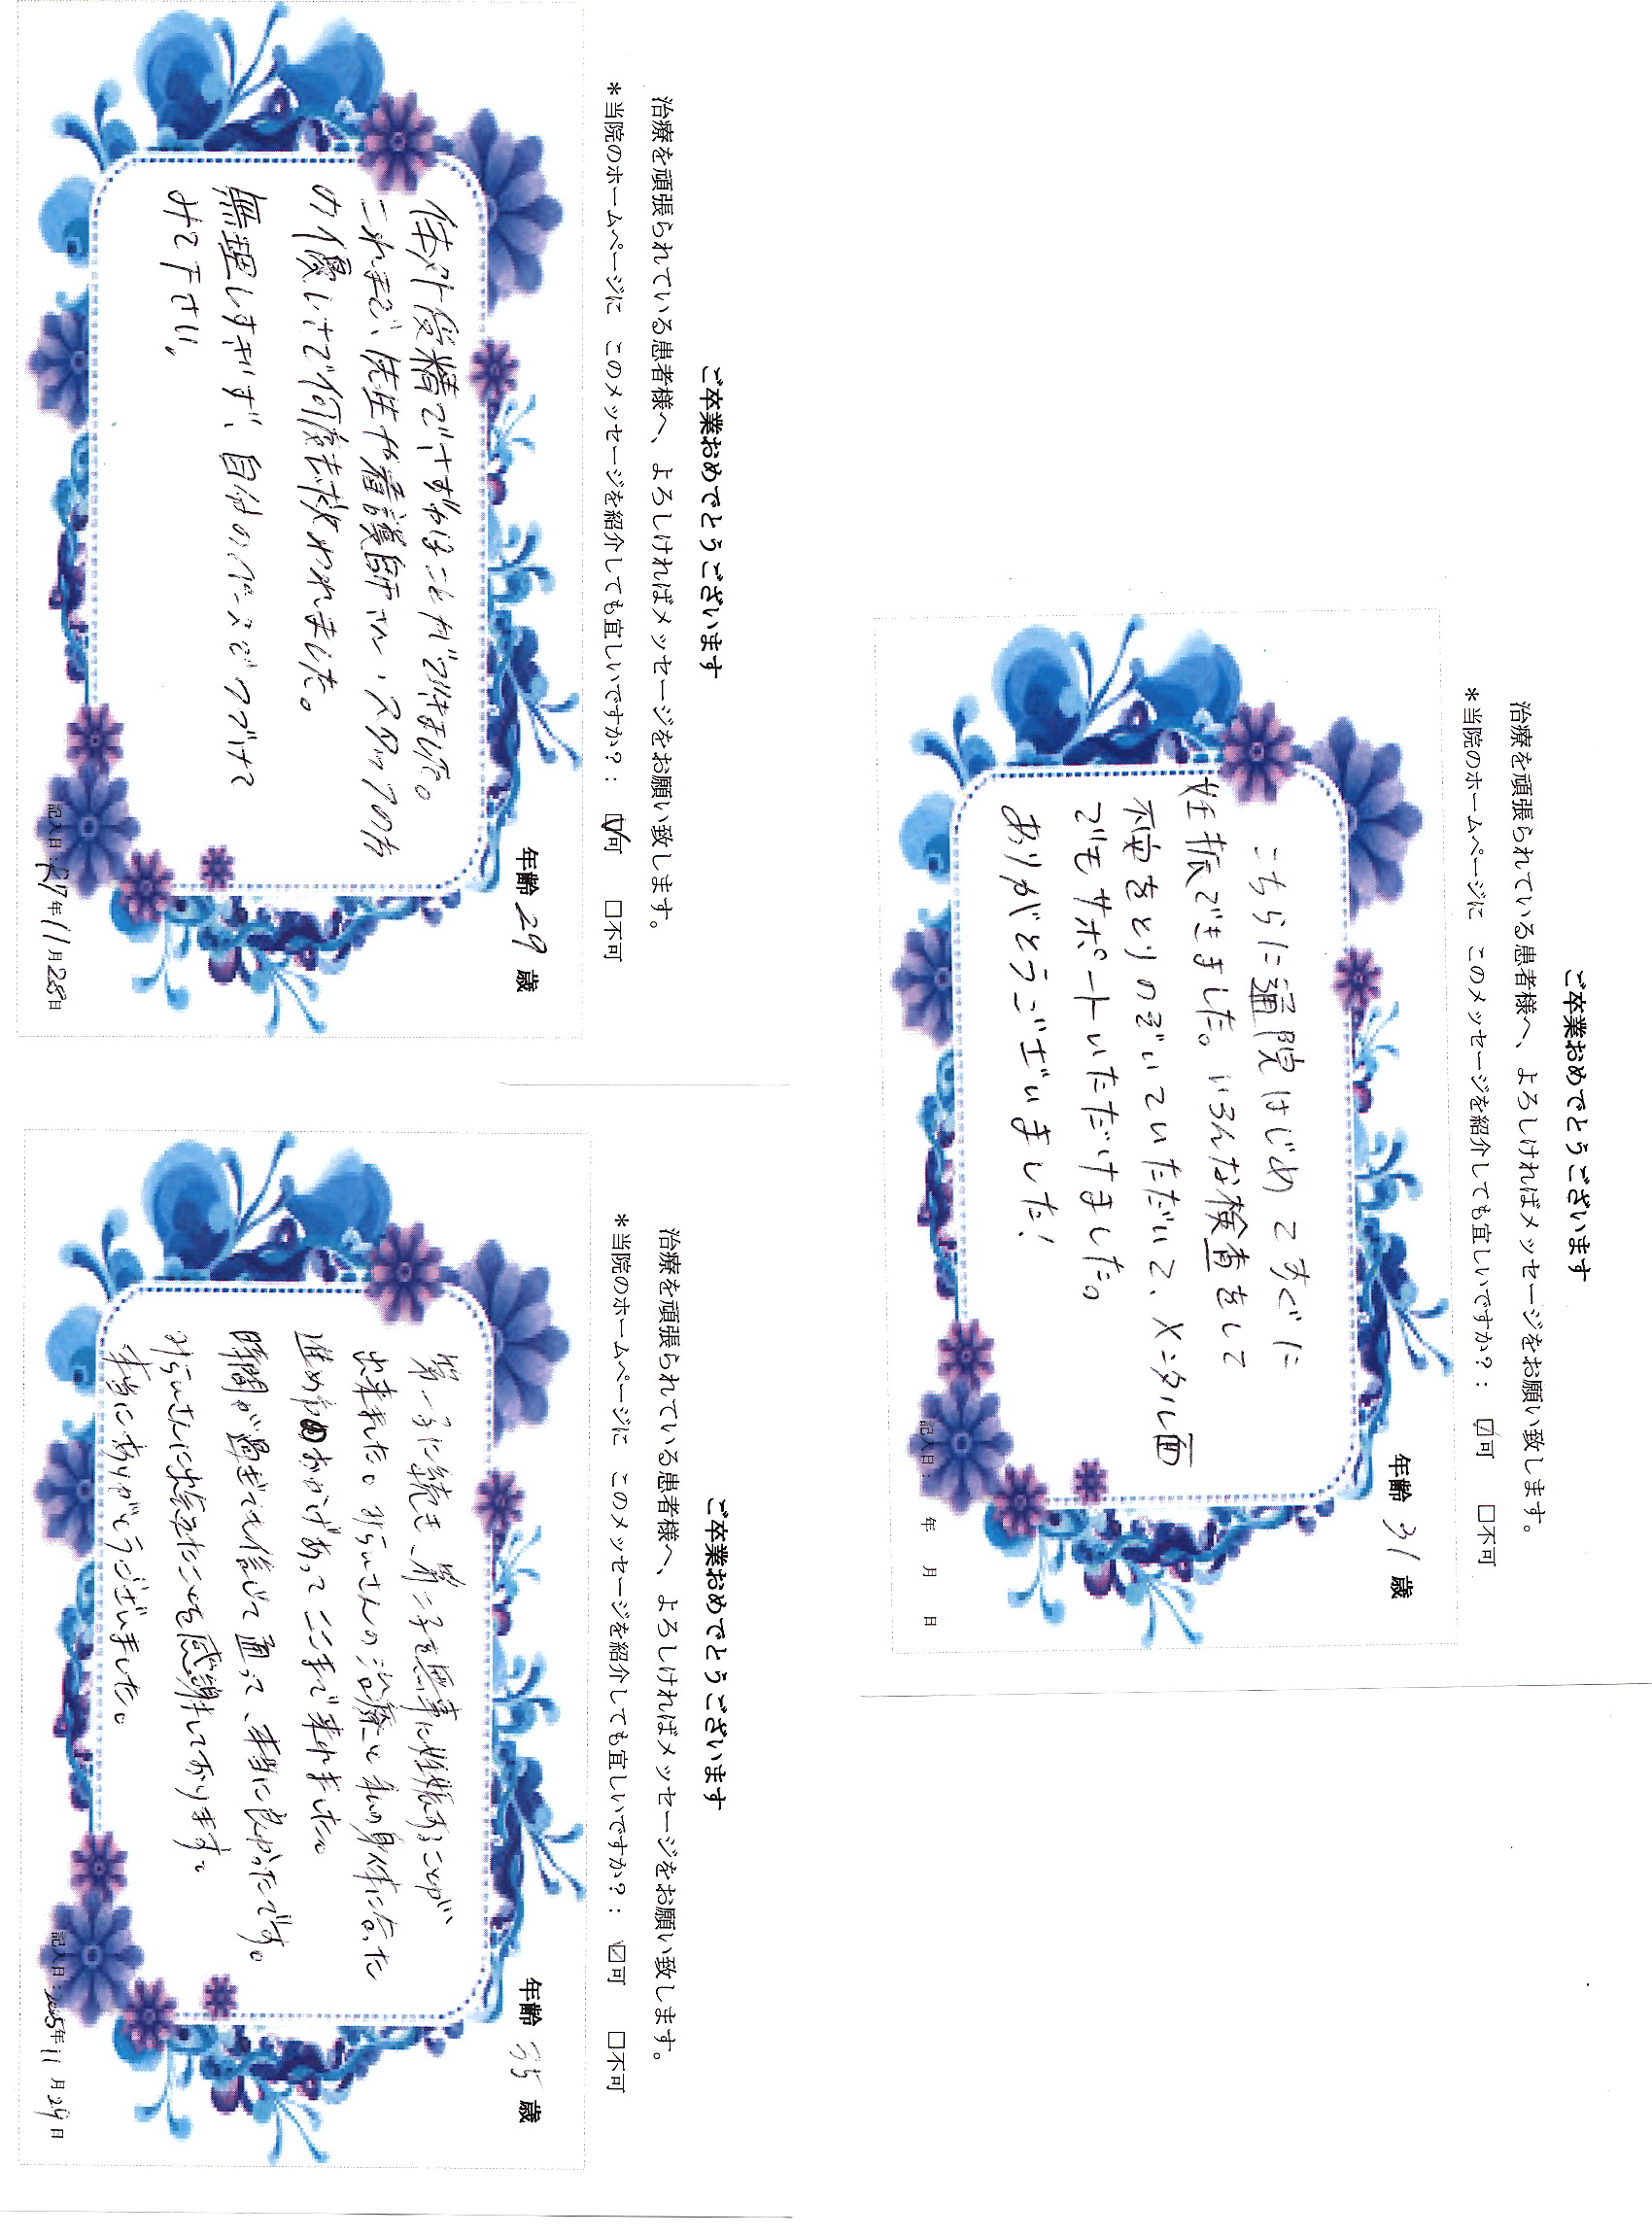 ご卒業おめでとうございます
治療を頑張られている患者様へ、よろしければメッセージをお願い致します。
*当院のホームページに このメッセージを紹介しても宜しいですか?: ☑可 □不可
年齢 29 歳
体外受精でさずかることができました。
これまで、先生や看護師さん、スタッフの方
の優しさで何度も救われました。
無理しすぎず、自分のペースでつづけて
みて下さい。
記入日:R7年11月28日
ご卒業おめでとうございます
治療を頑張られている患者様へ、よろしければメッセージをお願い致します。
*当院のホームページに このメッセージを紹介しても宜しいですか?: ☑可 □不可
年齢 31 歳
こちらに通院はじめてすぐに
妊娠できました。いろんな検査をして
不安をとりのぞいていただいて、メンタル面
でもサポートいただけました。
ありがとうございました!
記入日: 年 月 日
ご卒業おめでとうございます
治療を頑張られている患者様へ、よろしければメッセージをお願い致します。
*当院のホームページに このメッセージを紹介しても宜しいですか?: ☑可 □不可
年齢 35 歳
第一子に続き、第二子も無事に妊娠することが
出来ました。みらいさんの治療と私の身体に合った
進め方のおかげあってここまで来れました。
時間が過ぎても信じて通って、本当に良かったです。
みらいさんに出会えたことを感謝しております。
本当にありがとうございました。
記入日:2025年11月29日